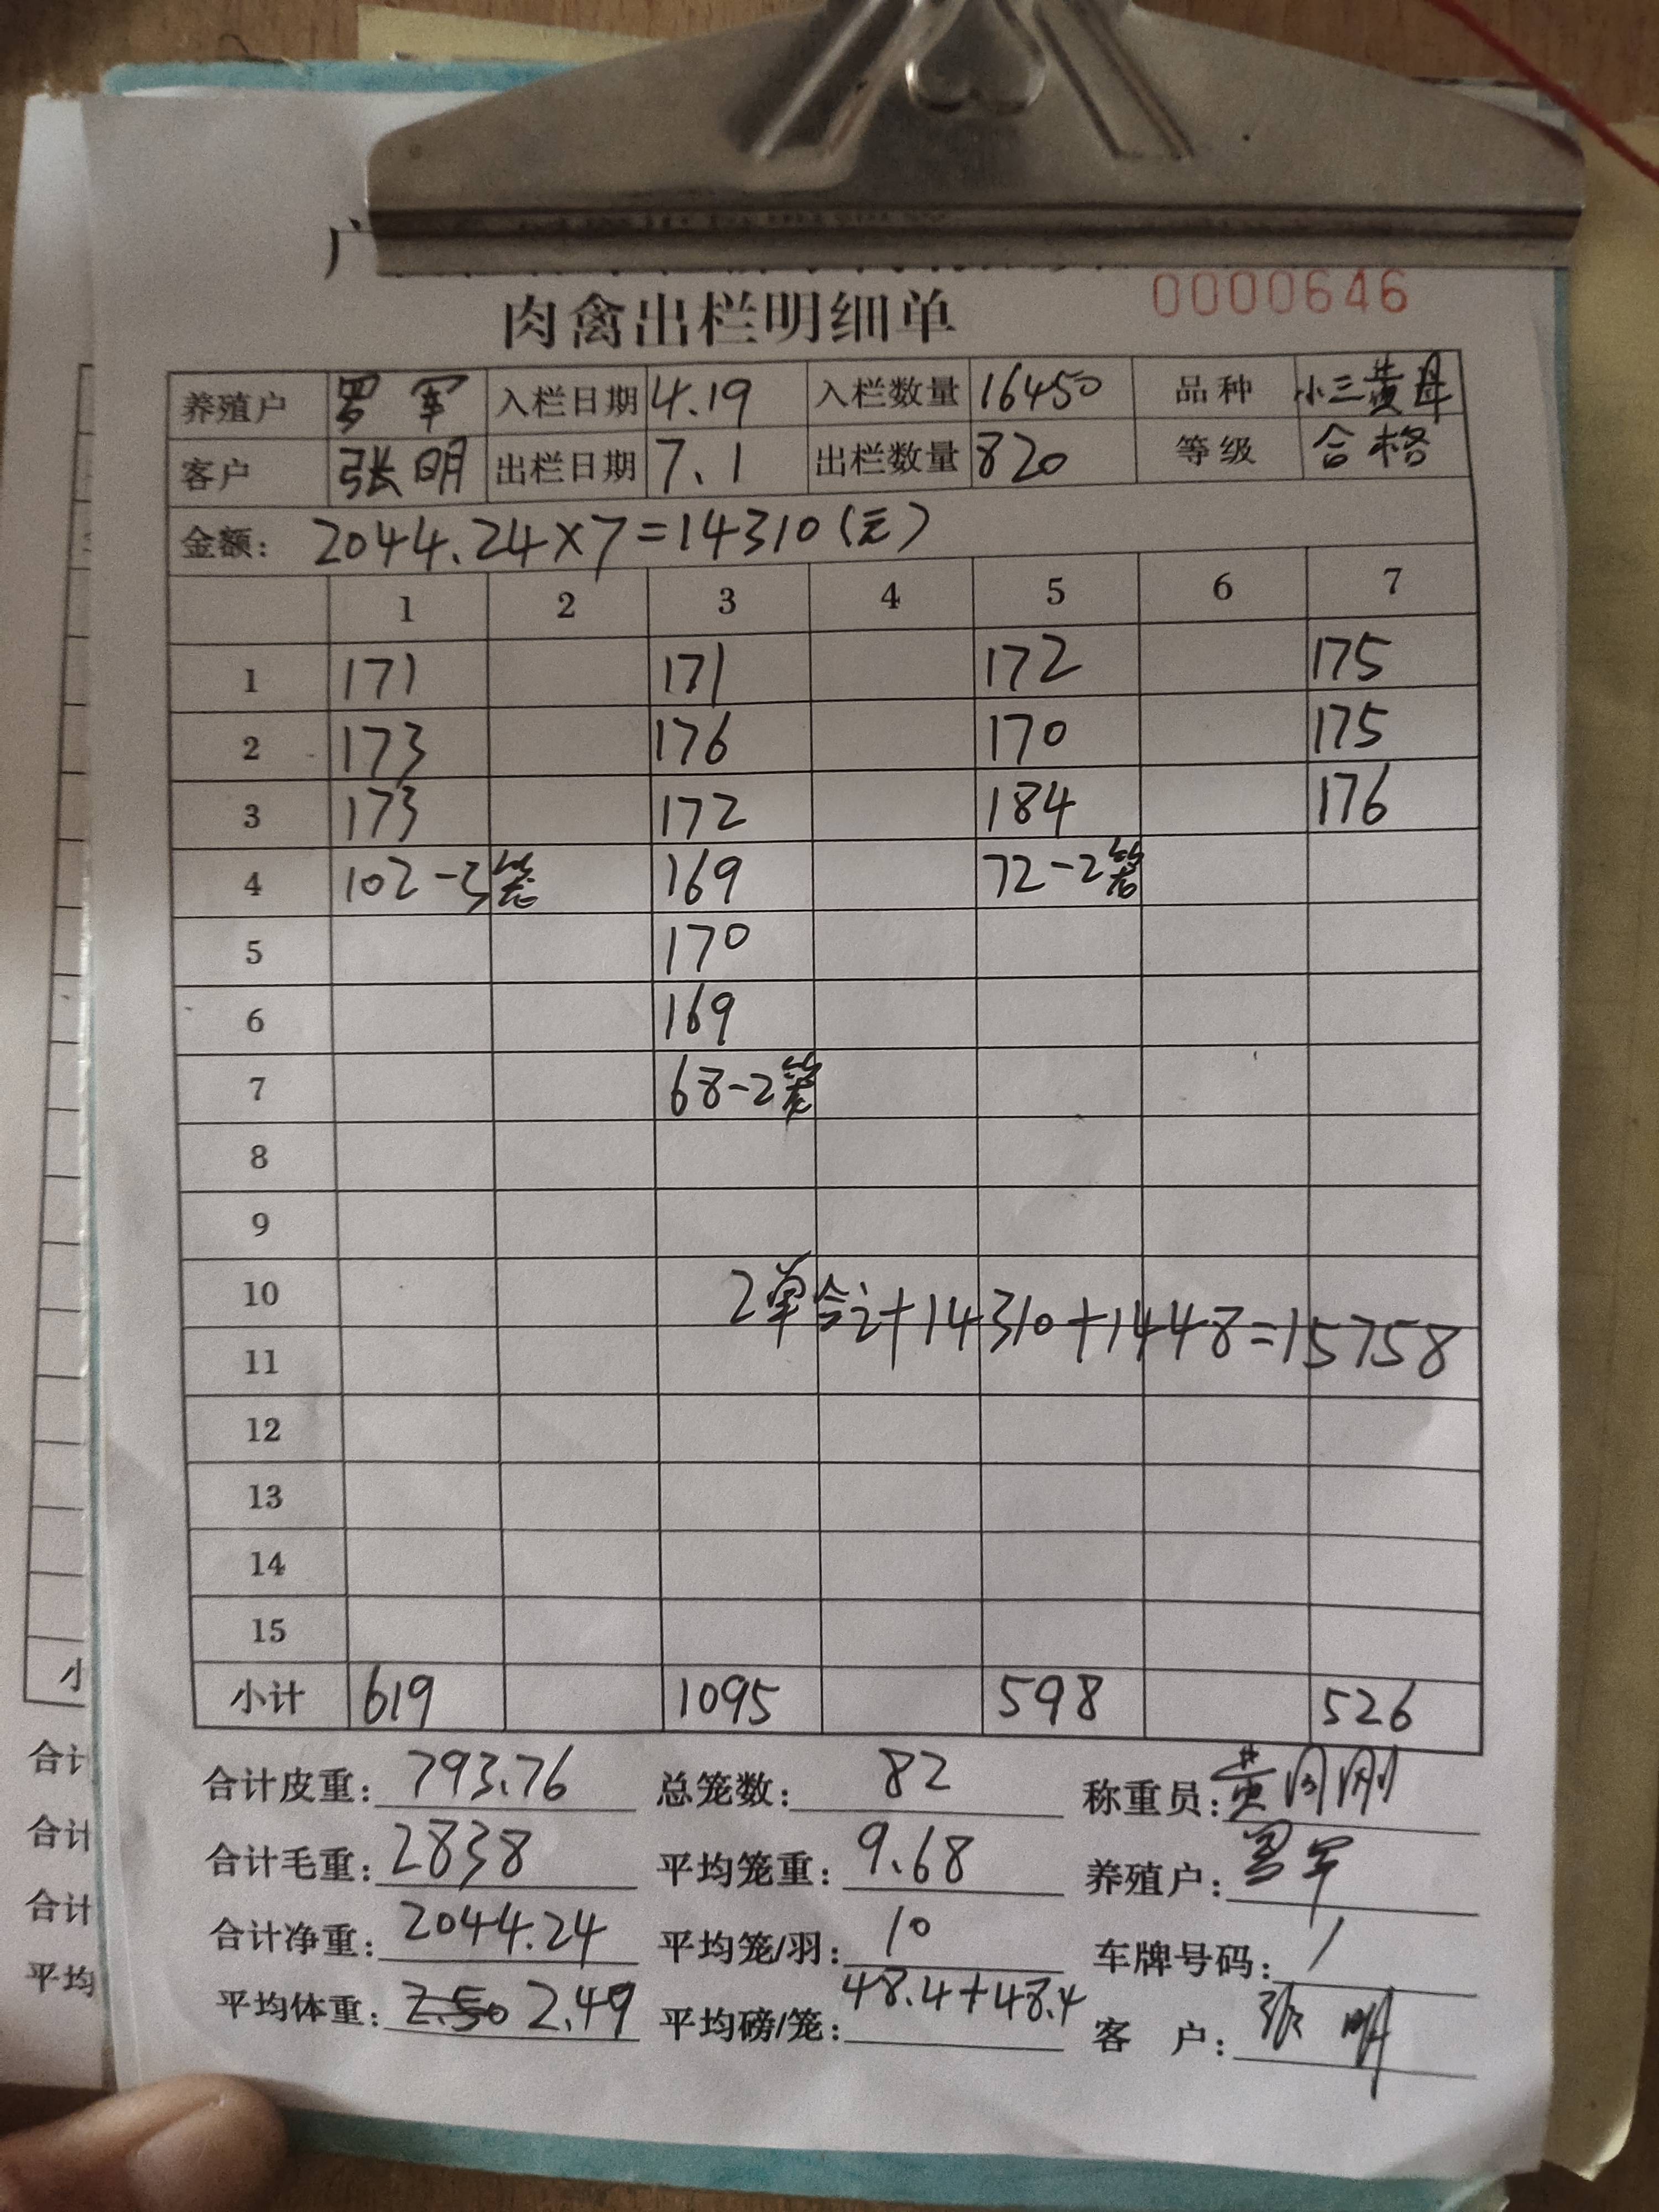 广
0000646
肉禽出栏明细单
养殖户 罗军 入栏日期 4.19 入栏数量 16450 品种 小三黄母
客户 张明 出栏日期 7.1 出栏数量 820 等级 合格
金额: 2044.24×7=14310(元)
1 2 3 4 5 6 7
1 171 171 172 175
2 173 176 170 175
3 173 172 184 176
4 102-3笼 169 72-2笼
5 170
6 169
7 68-2笼
8
9
10 2单合计+14310+1448=15758
11
12
13
14
15
小计 619 1095 598 526
合计皮重: 793.76 总笼数: 82 称重员:
合计毛重: 2838 平均笼重: 9.68 养殖户: 罗军
合计净重: 2044.24 平均笼/羽: 10 车牌号码: /
平均体重: 2.50 2.49 平均磅/笼: 48.4+48.4 客户: 张明
小
合计
合计
合计
平均